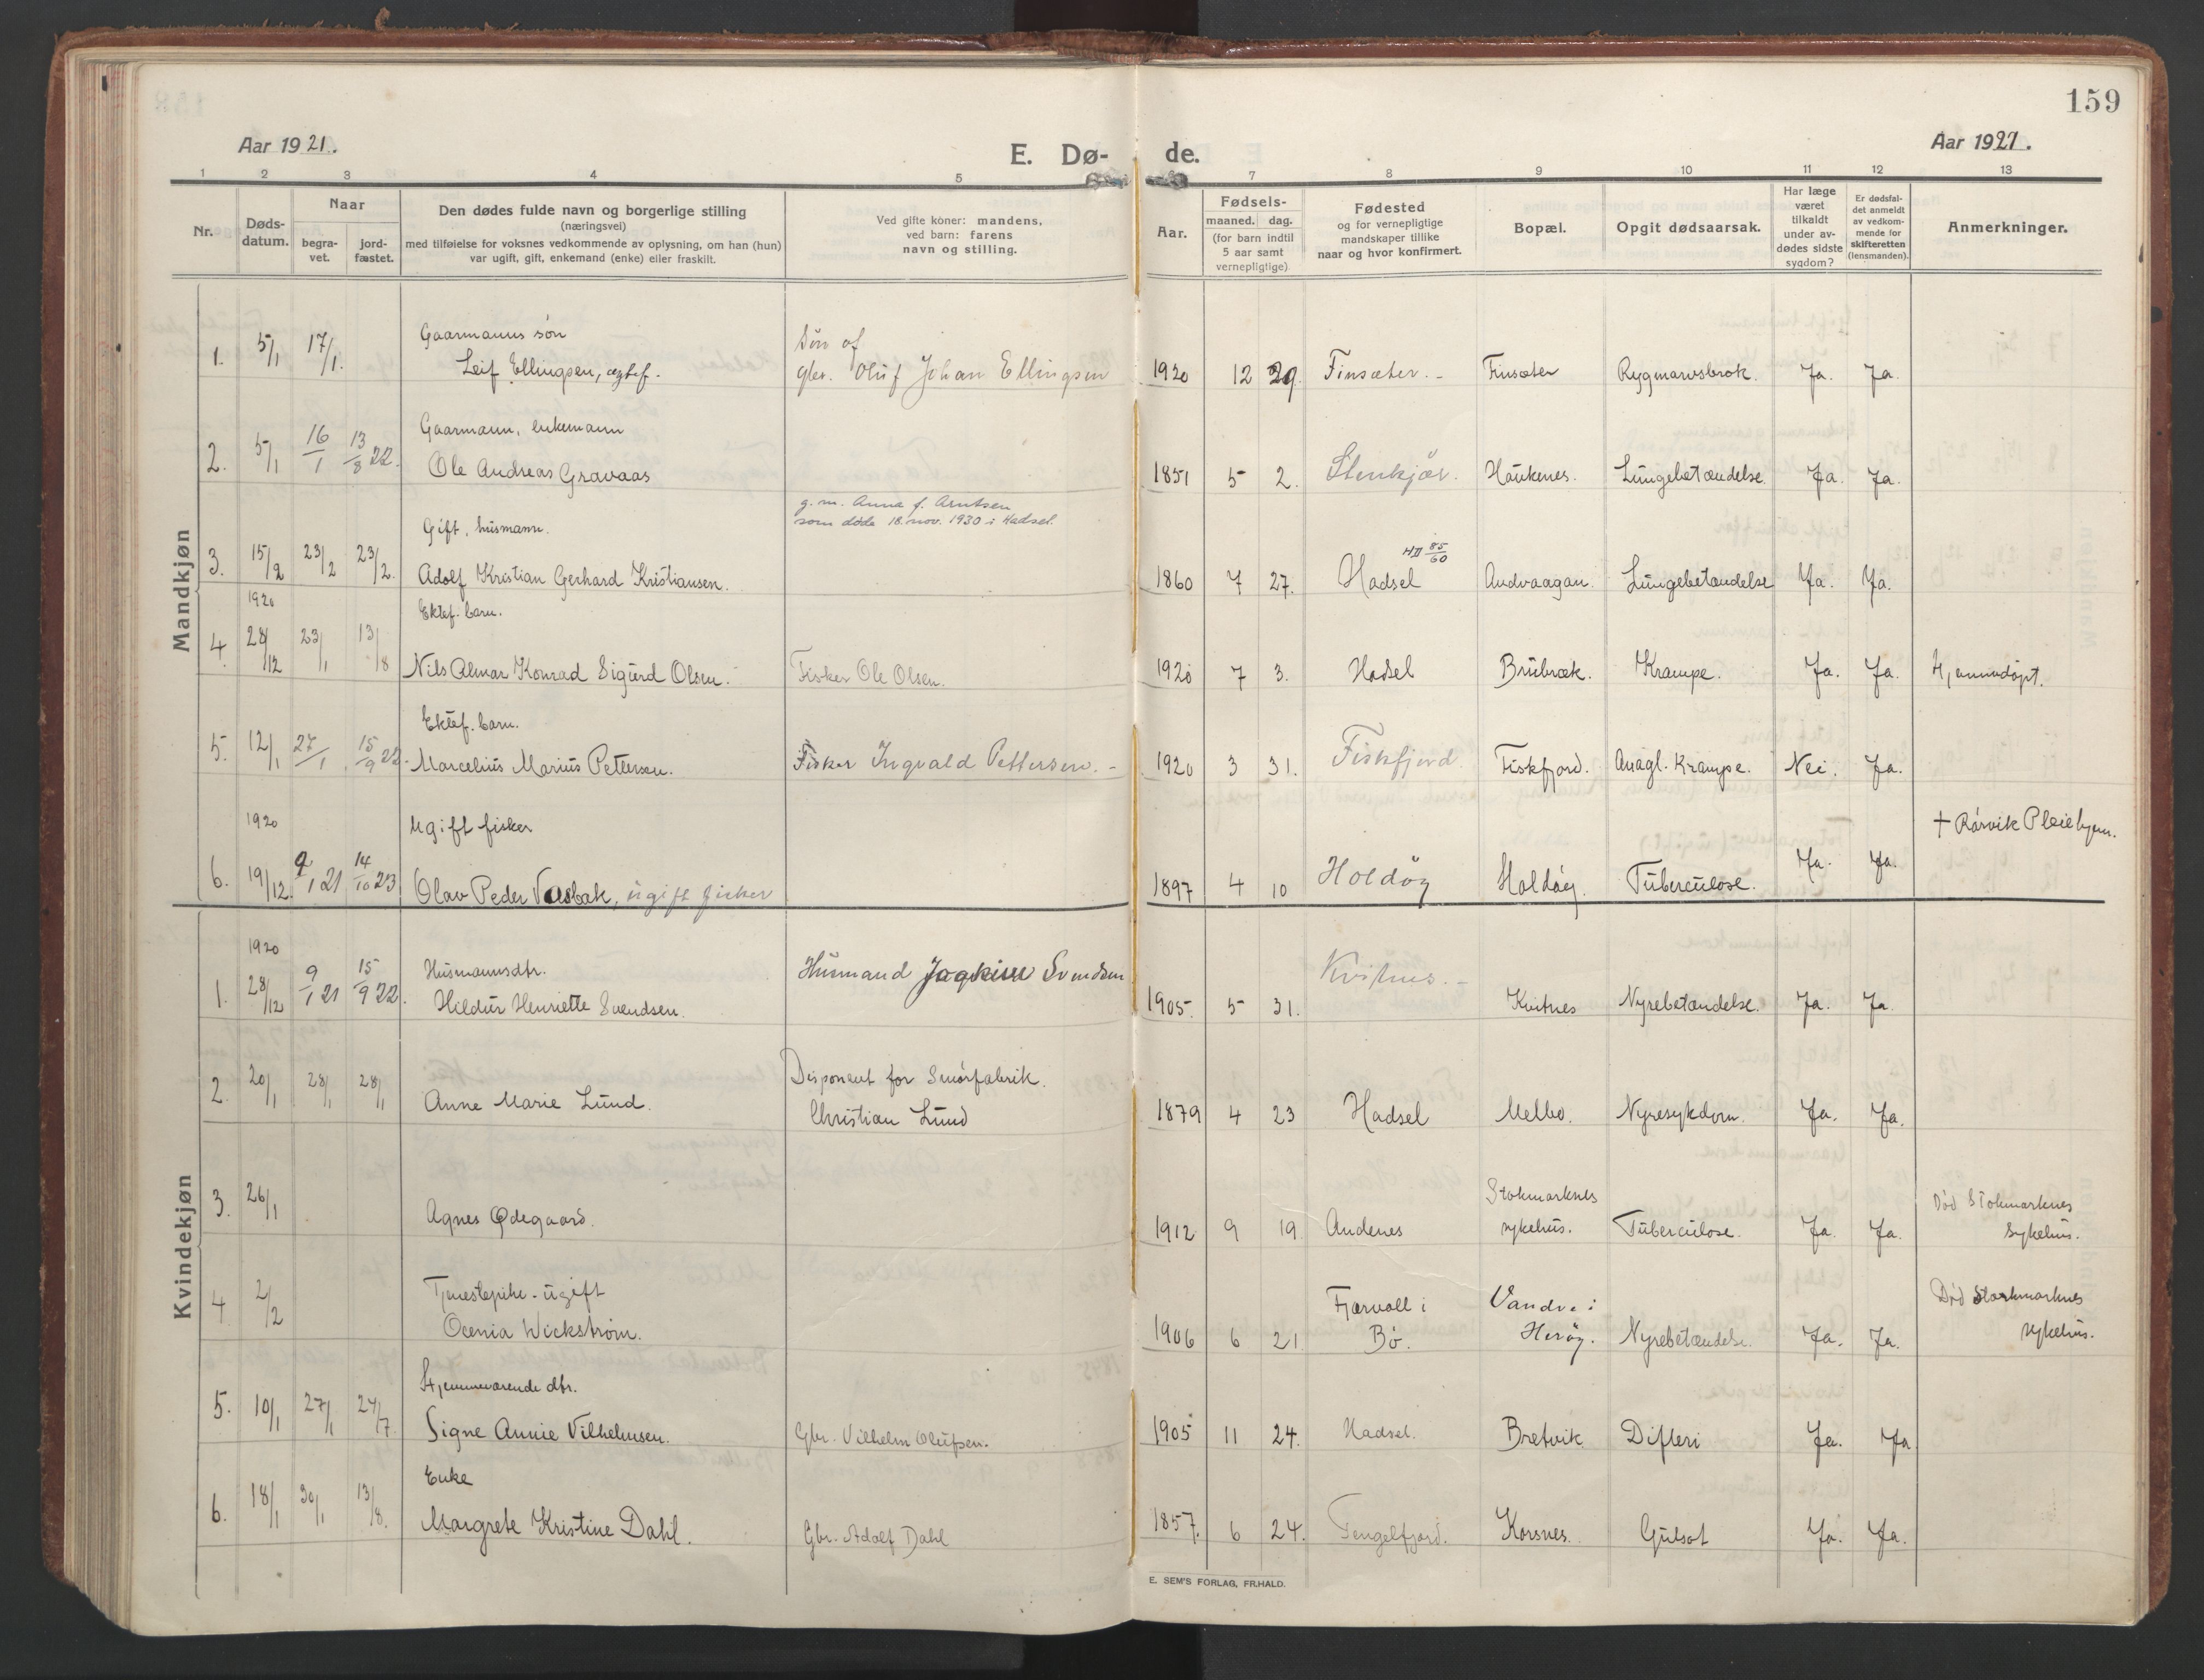 159
Aar 1921.
E. Dø- de.
Aar 1921.
1 2 3 4 5 7 8 9 10 11 12 13
Nr.
Døds-
datum.
Naar
begra-
vet.
jord-
fæstet.
Den dødes fulde navn og borgerlige stilling
(næringsvei)
med tilføielse for voksnes vedkommende av oplysning, om han (hun)
var ugift, gift, enkemand (enke) eller fraskilt.
Ved gifte koner: mandens,
ved barn: farens
navn og stilling.
Aar.
Fødsels-
maaned. dag.
(for barn indtil
5 aar samt
vernepligtige)
Fødested
og for vernepligtige
mandskaper tillike
naar og hvor konfirmert.
Bopæl.
Opgit dødsaarsak.
Har læge
været
tilkaldt
under av-
dødes sidste
sygdom?
Er dødsfal-
det anmeldt
av vedkom-
mende for
skifteretten
(lensmanden).
Anmerkninger.
Mandkjøn
Gaarmanns søn
Søn af
1. 5/1 17/1. Leif Ellingsen, egtef. gbr. Oluf Johan Ellingsen 1920 12 29. Finsæter. - Finsæter Rygmarvsbrok. Ja. Ja.
Gaarmann, enkemann
2. 5/1 16/1 13/8 22. Ole Andreas Gravaas 1851 5 2. Stenkjær. Haukenes. Lungebetændelse. Ja. Ja.
g. m. Anna f. Arntsen
som døde 18. nov. 1930 i Hadsel.
Gift, husmann.
HII 85/60
3. 15/2 23/2 23/2. Adolf Kristian Gerhard Kristiansen. 1860 7 27. Hadsel Andvaagan. Lungebetændelse Ja. Ja.
1920
Ektef. barn.
4. 28/12 23/1 13/8 Nils Almar Konrad Sigurd Olsen. Fisker Ole Olsen. 1920 7 3. Hadsel Brubræk. Krampe. Ja. Ja. Hjemmedøpt.
Ektef. barn.
5. 12/1 27/1 15/9 22. Marcelius Marius Pettersen. Fisker Ingvald Pettersen. - 1920 3 31. Fiskfjord. Fiskfjord. Anagl. Krampe. Nei. Ja.
1920
Ugift fisker
† Rørvik Pleiehjem.
6. 19/12. 9/1 21 14/10 23 Olav Peder Vasbak, ugift fisker 1897 4 10 Holdøy Holdøy. Tuberculose. Ja. Ja.
Kvindekjøn
1920
Husmannsdtr.
1. 28/12 9/1 21 15/9 22. Hildur Henriette Svendsen. Husmand Joakim Svendsen 1905. 5 31. Kvitnes. - Kvitnes Nyrebetændelse. Ja. Ja.
Disponent for Smørfabrik.
2. 20/1 28/1 28/1 Anne Marie Lund. Christian Lund 1879 4 23 Hadsel Melbo. Nyresykdom. Ja. Ja.
3. 26/1 Agnes Ødegaard. 1912 9 19. Andenes Stokmarknes
sykehus. Tuberculose. Ja. Ja. Død Stokmarknes
sykehus.
Tjenestepike - ugift
4 2/2 Ocenia Wickstrøm. 1906 6 21. Fjærvoll i
Bø. Vandve i
Herøy. Nyrebetændelse. Ja. Ja. Død Stokmarknes
sykehus.
Hjemmeværende dtr.
5. 10/1 27/1 24/7. Signe Annie Vilhelmsen. Gbr. Vilhelm Olufsen. 1905 11 24. Hadsel. Bretvik Difteri Ja. Ja
Enke
6. 18/1 30/1 13/8. Margrete Kristine Dahl. Gbr. Adolf Dahl 1857. 6 24. Tengelfjord. Korsnes. Gulsot Ja. Ja.
E. SEM'S FORLAG, FR.HALD.